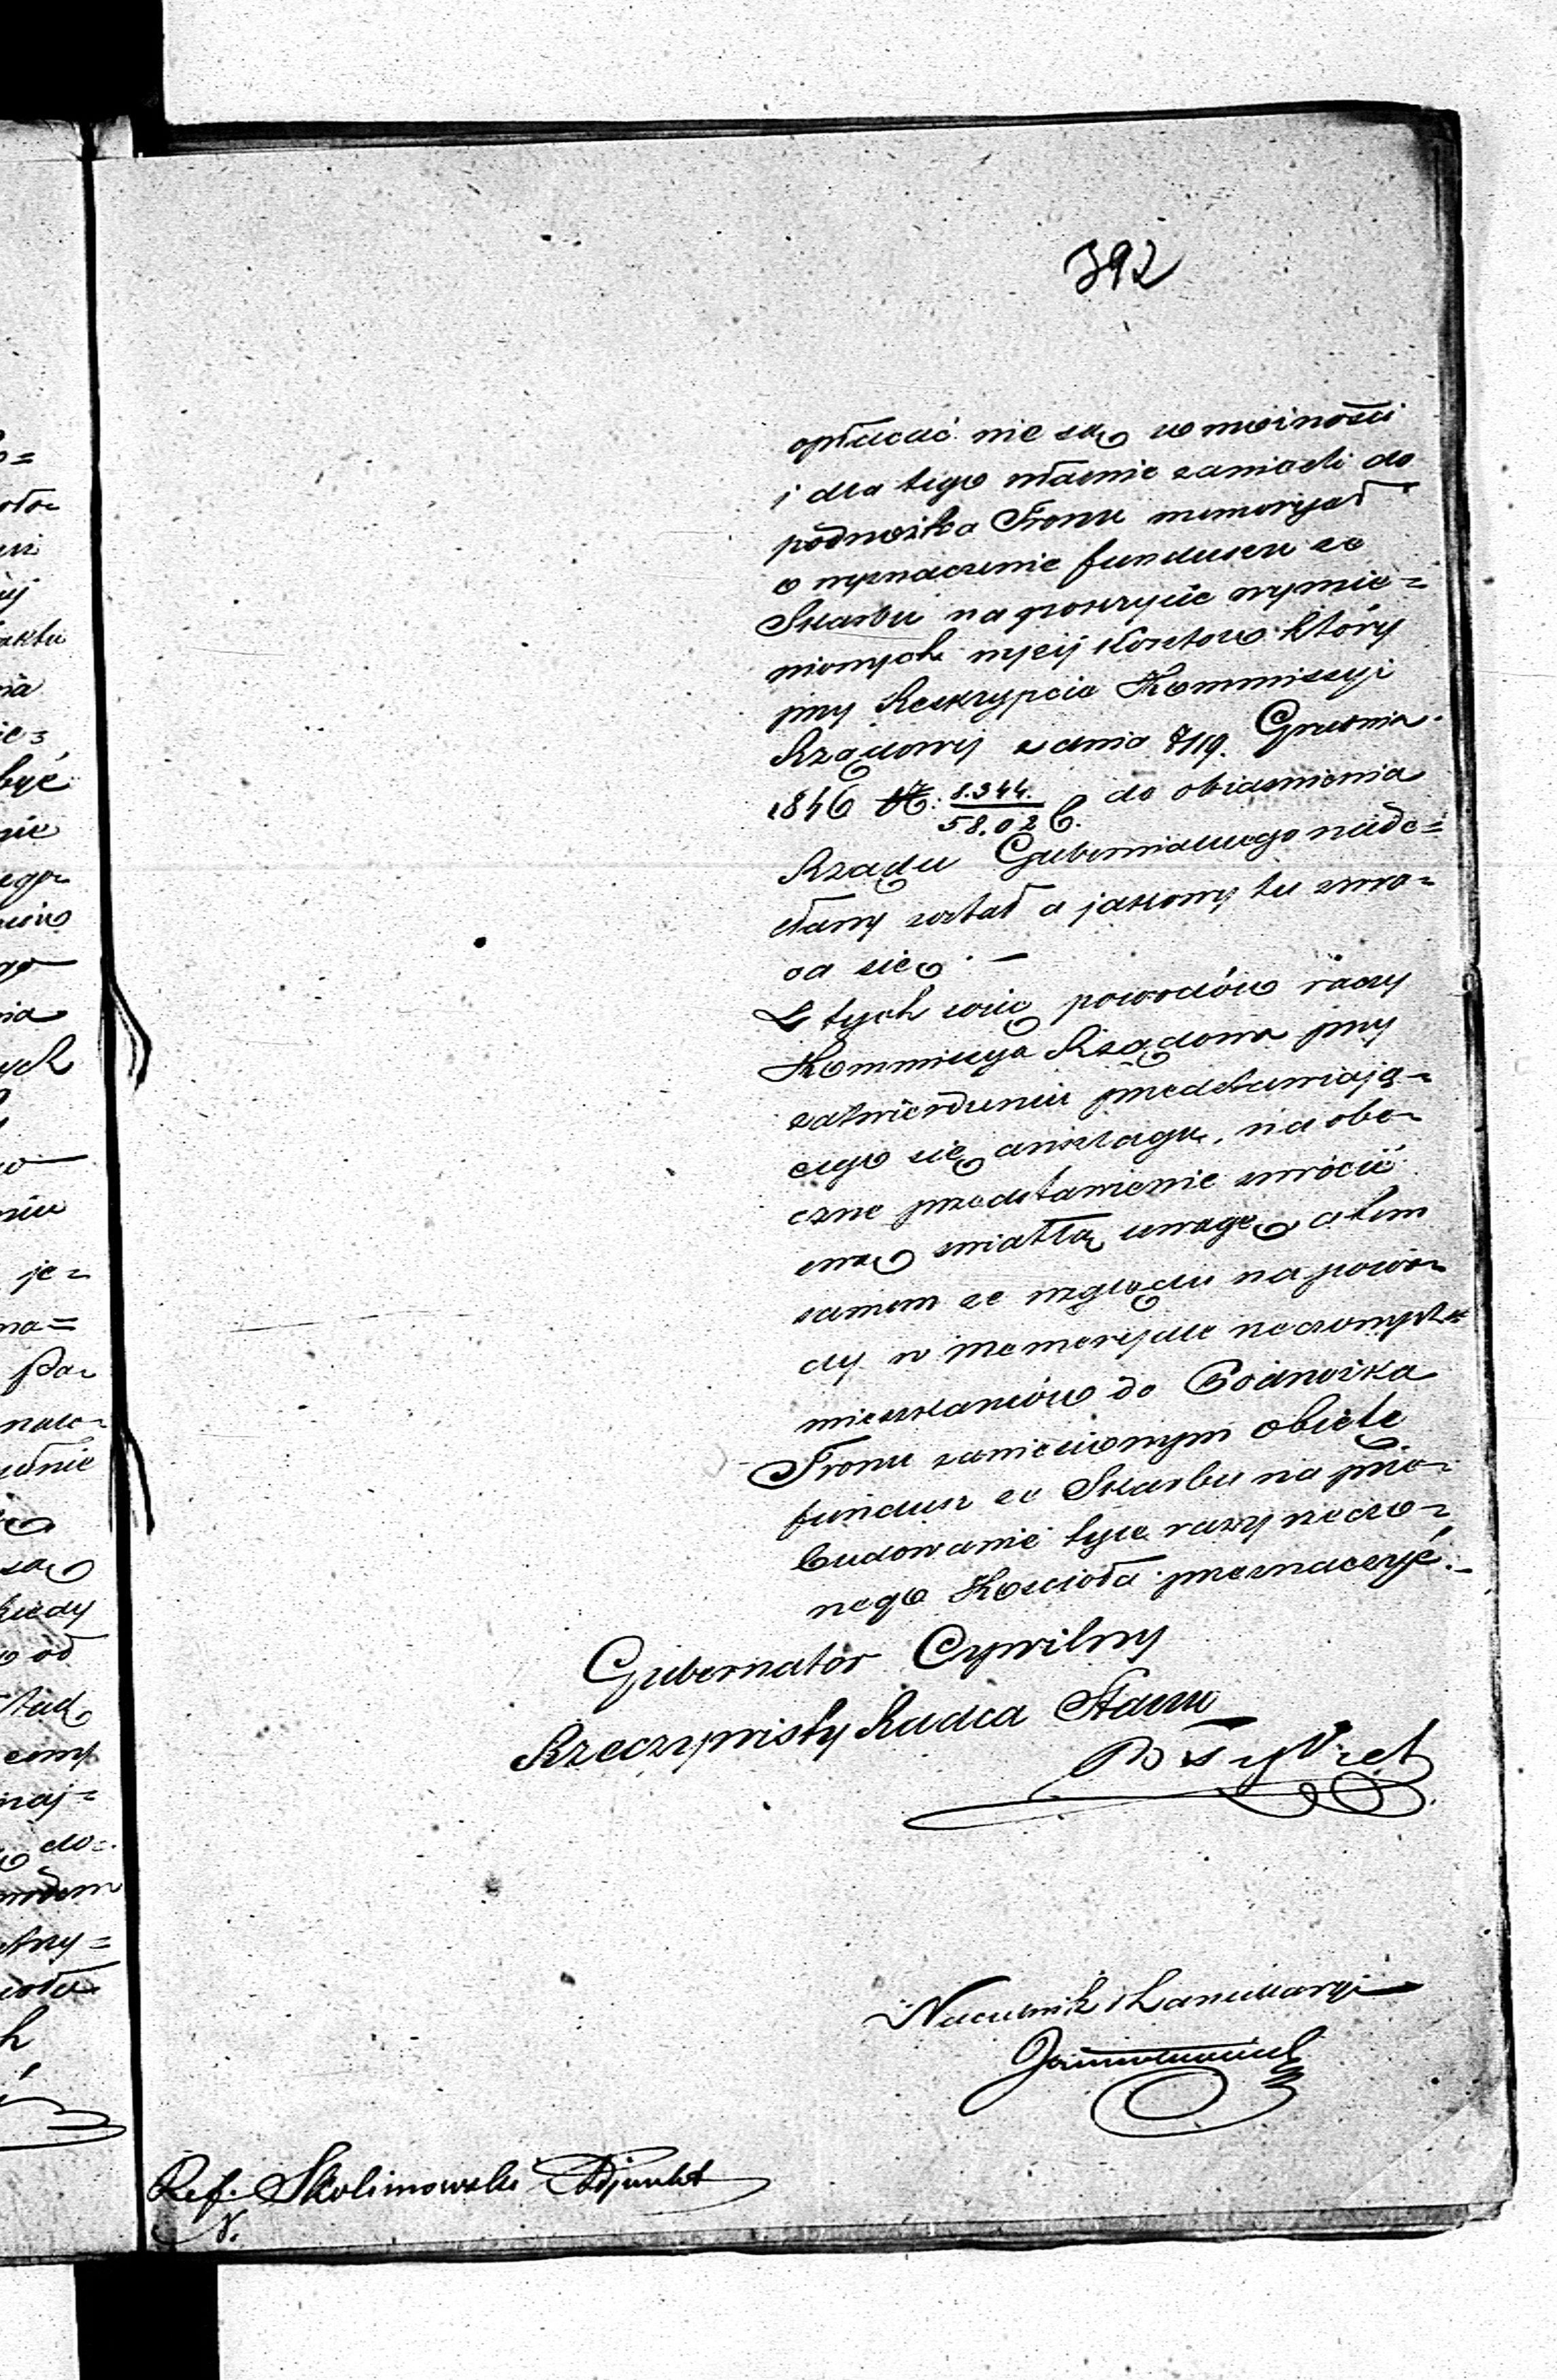 392
opłacać nie są w możności
i dla tego właśnie zanieśli do
podnóżka Tronu memoryał
o wyznaczenie funduszu ze
Skarbu na pokrycie wymie=
nionych wyżej kosztów który
przy Reskrypcie Kommissyi
Rządowej z dnia 7/19. Grudnia
1846 N: 8.344./58.02 C. do obiaśnienia
Rządu Gubernialnego nade=
słany został a jakowy tu zwra=
ca się. —
Z tych więc powodów raczy
Kommissya Rządowa przy
zatwierdzeniu przedstawiają=
cego się anszlagu, na obe=
czne przedstawienie zwrócić
swą światłą uwagę a tem
samem ze względu na powo=
dy w memoryale rzeczonych
mieszkańców do Podnóżka
Tronu zaniesionym objęte
fundusz ze Skarbu na prze=
budowanie tyle razy rzeczo=
nego Kościoła przeznaczyć.—
Gubernator Cywilny
Rzeczywisty Radca Stanu
Naczelnik Kancellaryi
Ref. Skolimowski Adjunkt